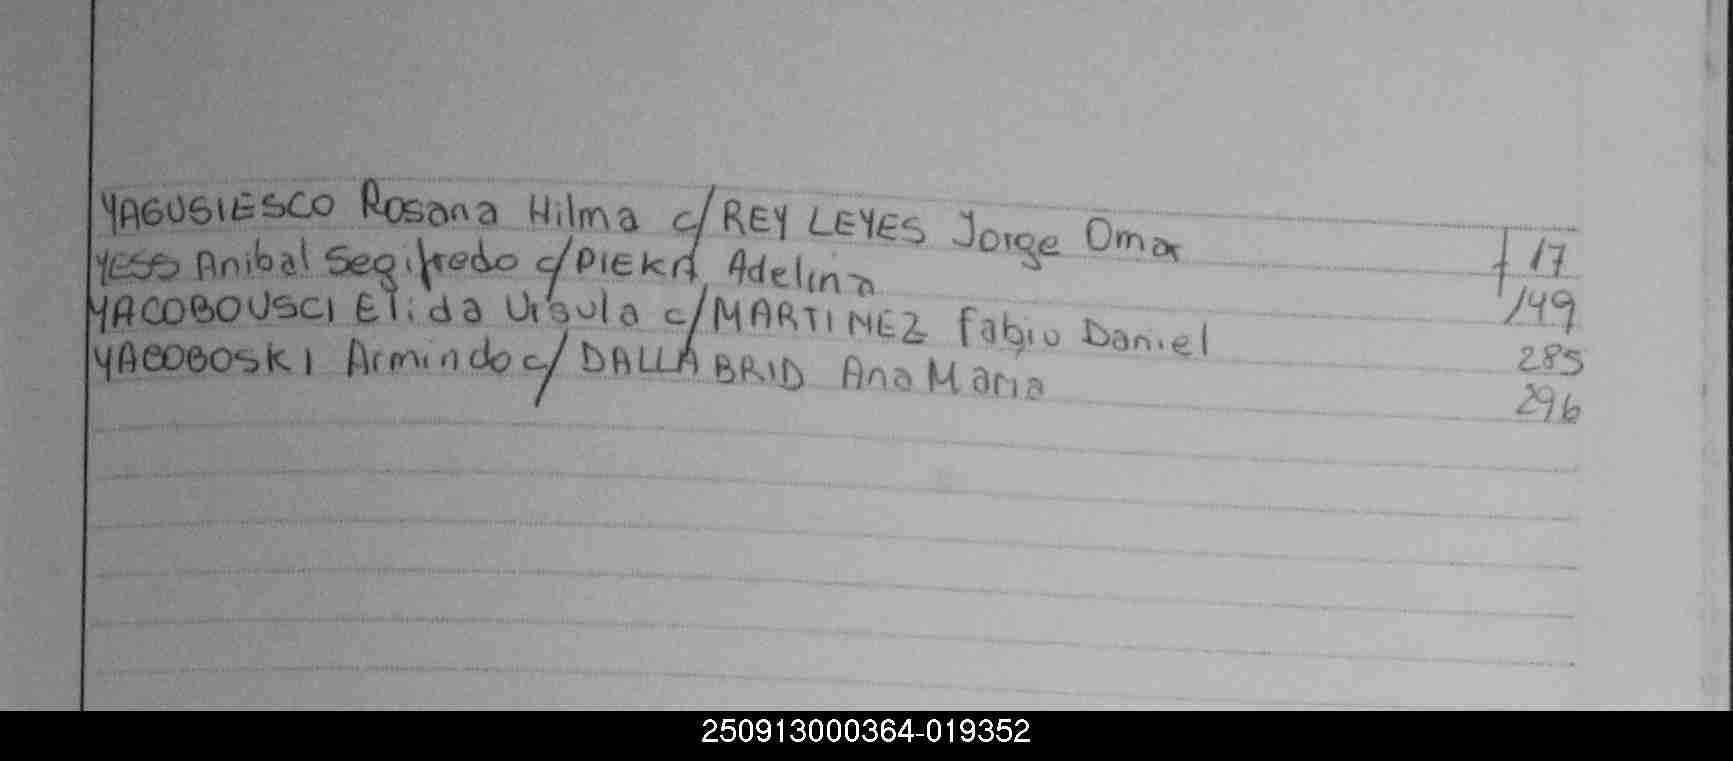 YAGUSIESCO Rosana Hilma c/ REY LEYES Jorge Omar 17
YESS Anibal Segifredo c/ PIEKA Adelina 149
YACOBOUSCI Elida Ursula c/ MARTINEZ Fabio Daniel 285
YACOBOSKI Armindo c/ DALLA BRID Ana Maria 296
250913000364-019352